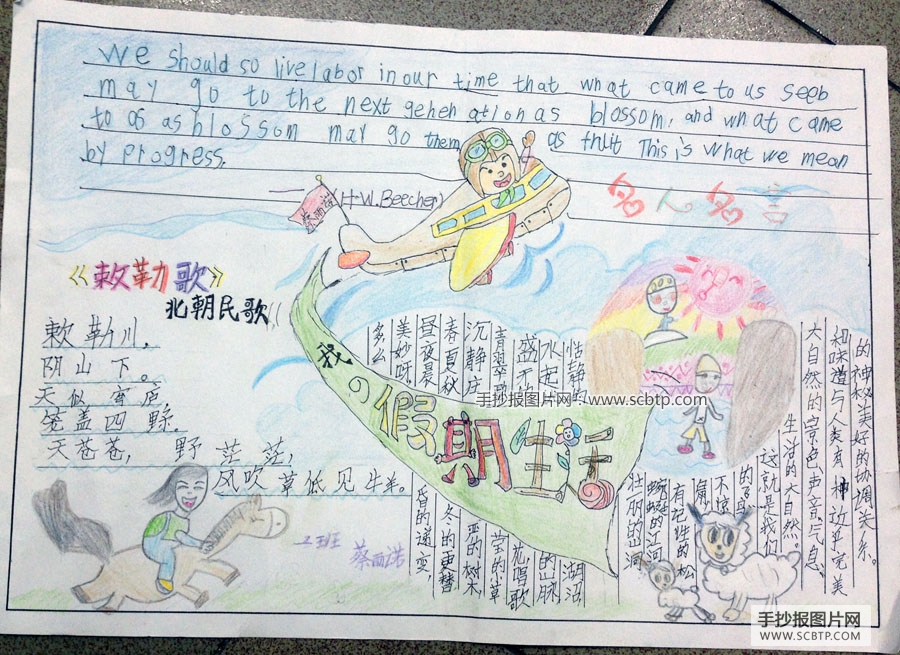 we should so live labor in our time that what came to us seeb
may go to the next geheh ation as blossom, and what came
to as as blossom may go them as thuit This is what we mean
by progress.
—(H.W.Beecher)
名人名言
蔡西诺
《敕勒歌》
北朝民歌
敕勒川,
阴山下。
天似穹庐,
笼盖四野.
天苍苍, 野茫茫,
风吹草低见牛羊。
我の假期生活
的神秘美好的协调关系。
和味道与人类有一种近乎完美
大自然的景色声音气息、
生活的大自然,
这就是我们
的鸟
不惊
有记性的松
蜿蜒的江河
壮丽的山涧
恬静的
湖泊
水起
的山脉
盛开的
花,唱歌
青翠
莹的小草
沉静庄
亚的树木,
春夏秋
冬的更替
昼夜晨
昏的递变,
美妙呀
多么
二班 蔡西诺
手抄报图片网:www.scbtp.com
手抄报图片网
WWW.SCBTP.COM